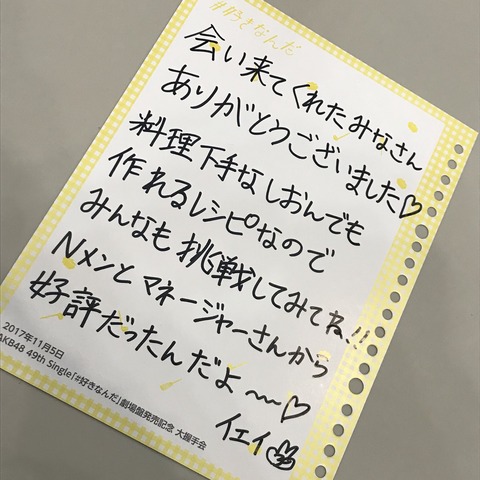 #好きなんだ
会い来てくれたみなさん
ありがとうございました♡
料理下手なしおんでも
作れるレシピなので
みんなも挑戦してみてね!!
Nメンとマネージャーさんから
好評だったんだよ〜〜♡
イエイ
2017年11月5日
AKB48 49th Single「#好きなんだ」劇場盤発売記念 大握手会